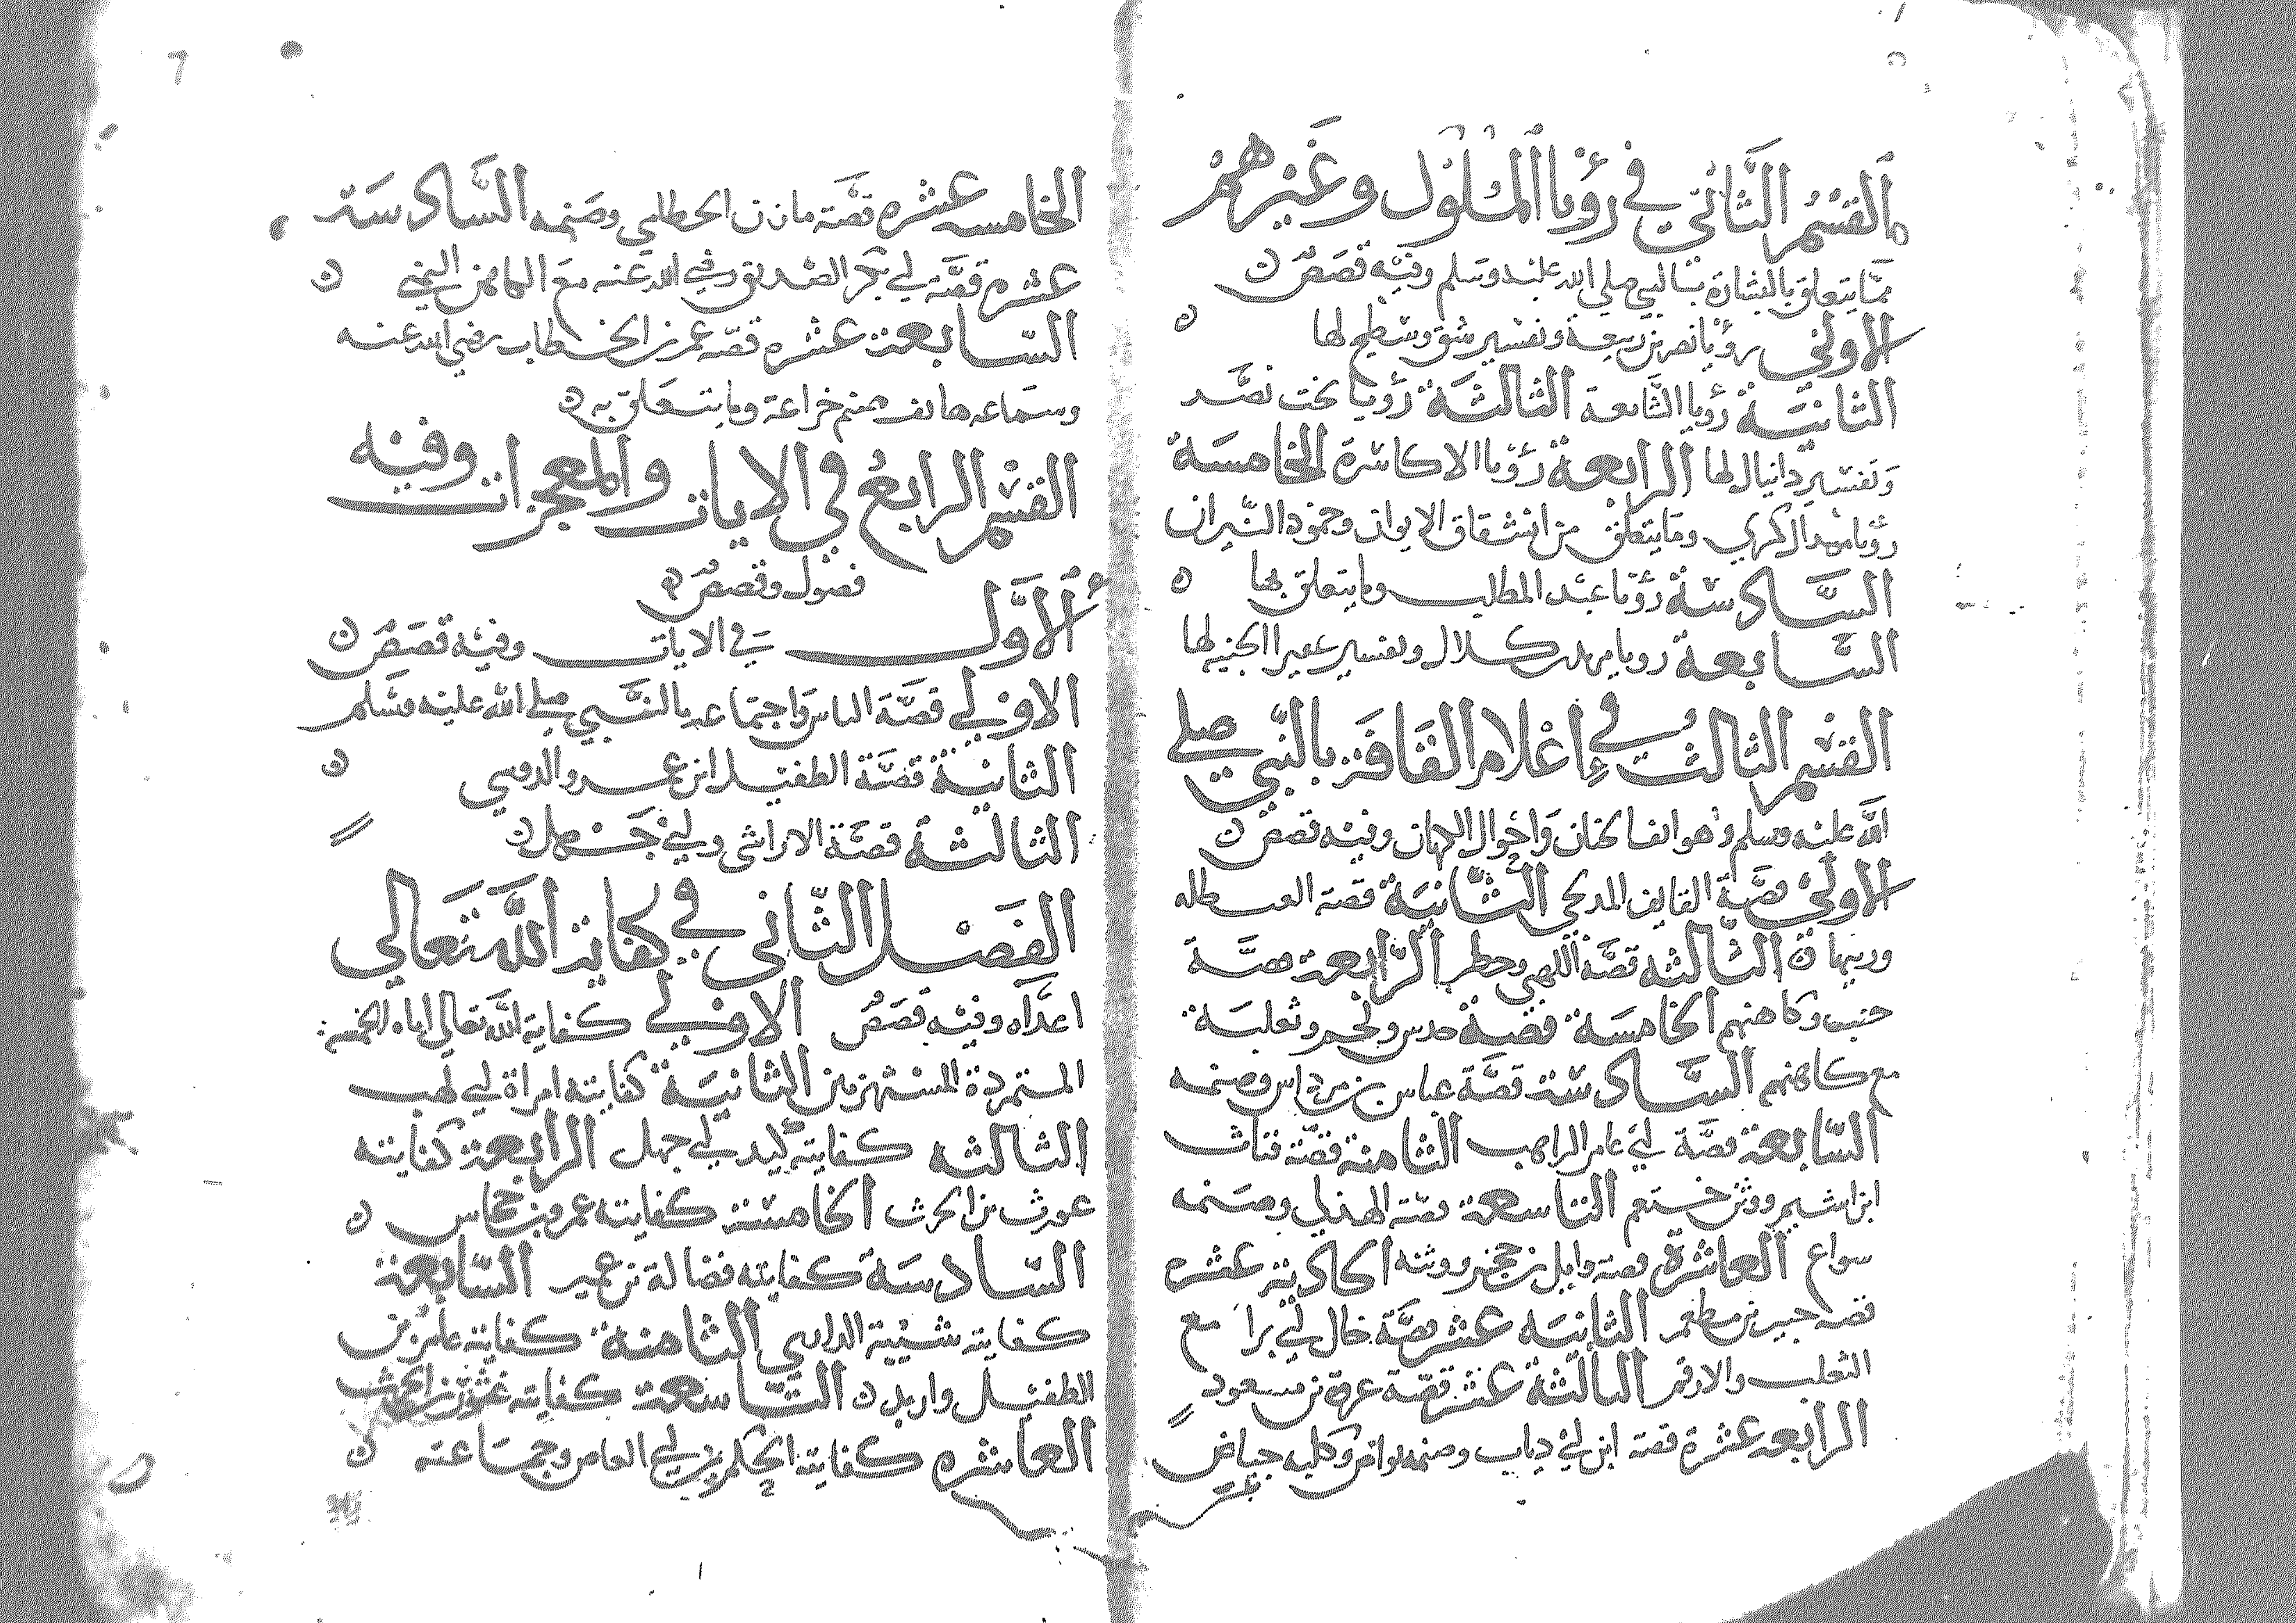 القسم الثاني في رؤيا الملوك وغيرهم
مما يتعلق بالبشارة بالنبي صلى الله عليه وسلم وفيه قصص
الاولى رؤيا نصر بن ربيعة وتفسير شق وسطيح لها
الثانية رؤيا الثالثة رؤيا بخت نصر
وتفسير دانيال لها الرابعة رؤيا الاكاسرة الخامسة
رؤيا وما يتعلق من انشقاق الايوان وخمود النيران
السادسة رؤيا عبد المطلب وما يتعلق بها
السابعة رويا مرثد بن كلال وتفسير عفيرا الجنيه لها
القسم الثالث في اعلام القافة بالنبي صلى
الله عليه وسلم وهواتف الجان واحوال الكهان وفيه قصص
الاولى قصة القايف المدلجي الثانية قصة
الثالثه قصة اللهبي وخطر الرابعة قصة
جنب وكاهنهم الخامسة قصة وثعلبة
مع كاهنهم السادسة قصة عباس بن مرداس وصنمه
السابعة قصة ابي عامر الراهب الثامنة قصة قتات
ابن اشيم ووثن خثعم التاسعة قصة الهذلي وصنمه
سواع العاشرة قصة وايل بن حجر ووثنه الحادية عشره
قصه جبير بن مطعم الثانيه عشر قصة خال ابي برا مع
الثعلب والارقم الثالثة عشر قصة عروة بن مسعود
الرابعه عشرة قصة ابن ابي دياب وصنمه وكلبه حياض
الخامسه عشره قصة مازن الخطامي وصنمه السادسة
عشره قصة ابي بكر الصديق رضي الله عنه مع الكاهن اليمني
السابعة عشره قصة عمر بن الخطاب رضي الله عنه
وسماعه هاتف صنم خزاعة وما يتعلق به
القسم الرابع في الايات والمعجزات وفيه
فصول وقصص
الاول في الايات وفيه قصص
الاولى قصة الناس واجتماعه بالنبي صلى الله عليه وسلم
الثانية قصة الطفيل ابن عمرو الدوسي
الثالثة قصة الاراشي وابي جهل
الفصل الثاني في كفاية الله تعالى
اعداه وفيه قصص الاولى كفاية الله تعالى اياه الخمسة
المتمردة المستهزءين الثانية كفايته امراة ابي لهب
الثالثه كفايته كيد ابي جهل الرابعة كفايته
غورث بن الحرث الخامسة كفايته عمرو بن جحاش
السادسة كفايته فضالة بن عمير السابعة
كفايته شيبة الداري الثامنة كفايته عامر بن
الطفيل واربد التاسعة كفايته بن الحرث
العاشره كفايته الحكم بن ابي العاص وجماعته